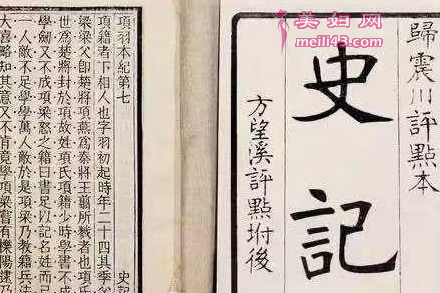 美妇网
meili43.com
歸震川評點本
史記
方望溪評點坿後
史記
項羽本紀第七
項籍者下相人也字羽初起時年二十四其季父
梁梁父卽楚將項燕爲秦將王翦所戮者也項氏
世爲楚將封於項故姓項氏項籍少時學書不成
學劍又不成項梁怒之籍曰書足以記名姓而已
一人敵不足學學萬人敵於是項梁乃教籍兵法
大喜略知其意又不肯竟學項梁嘗有櫟陽逮乃